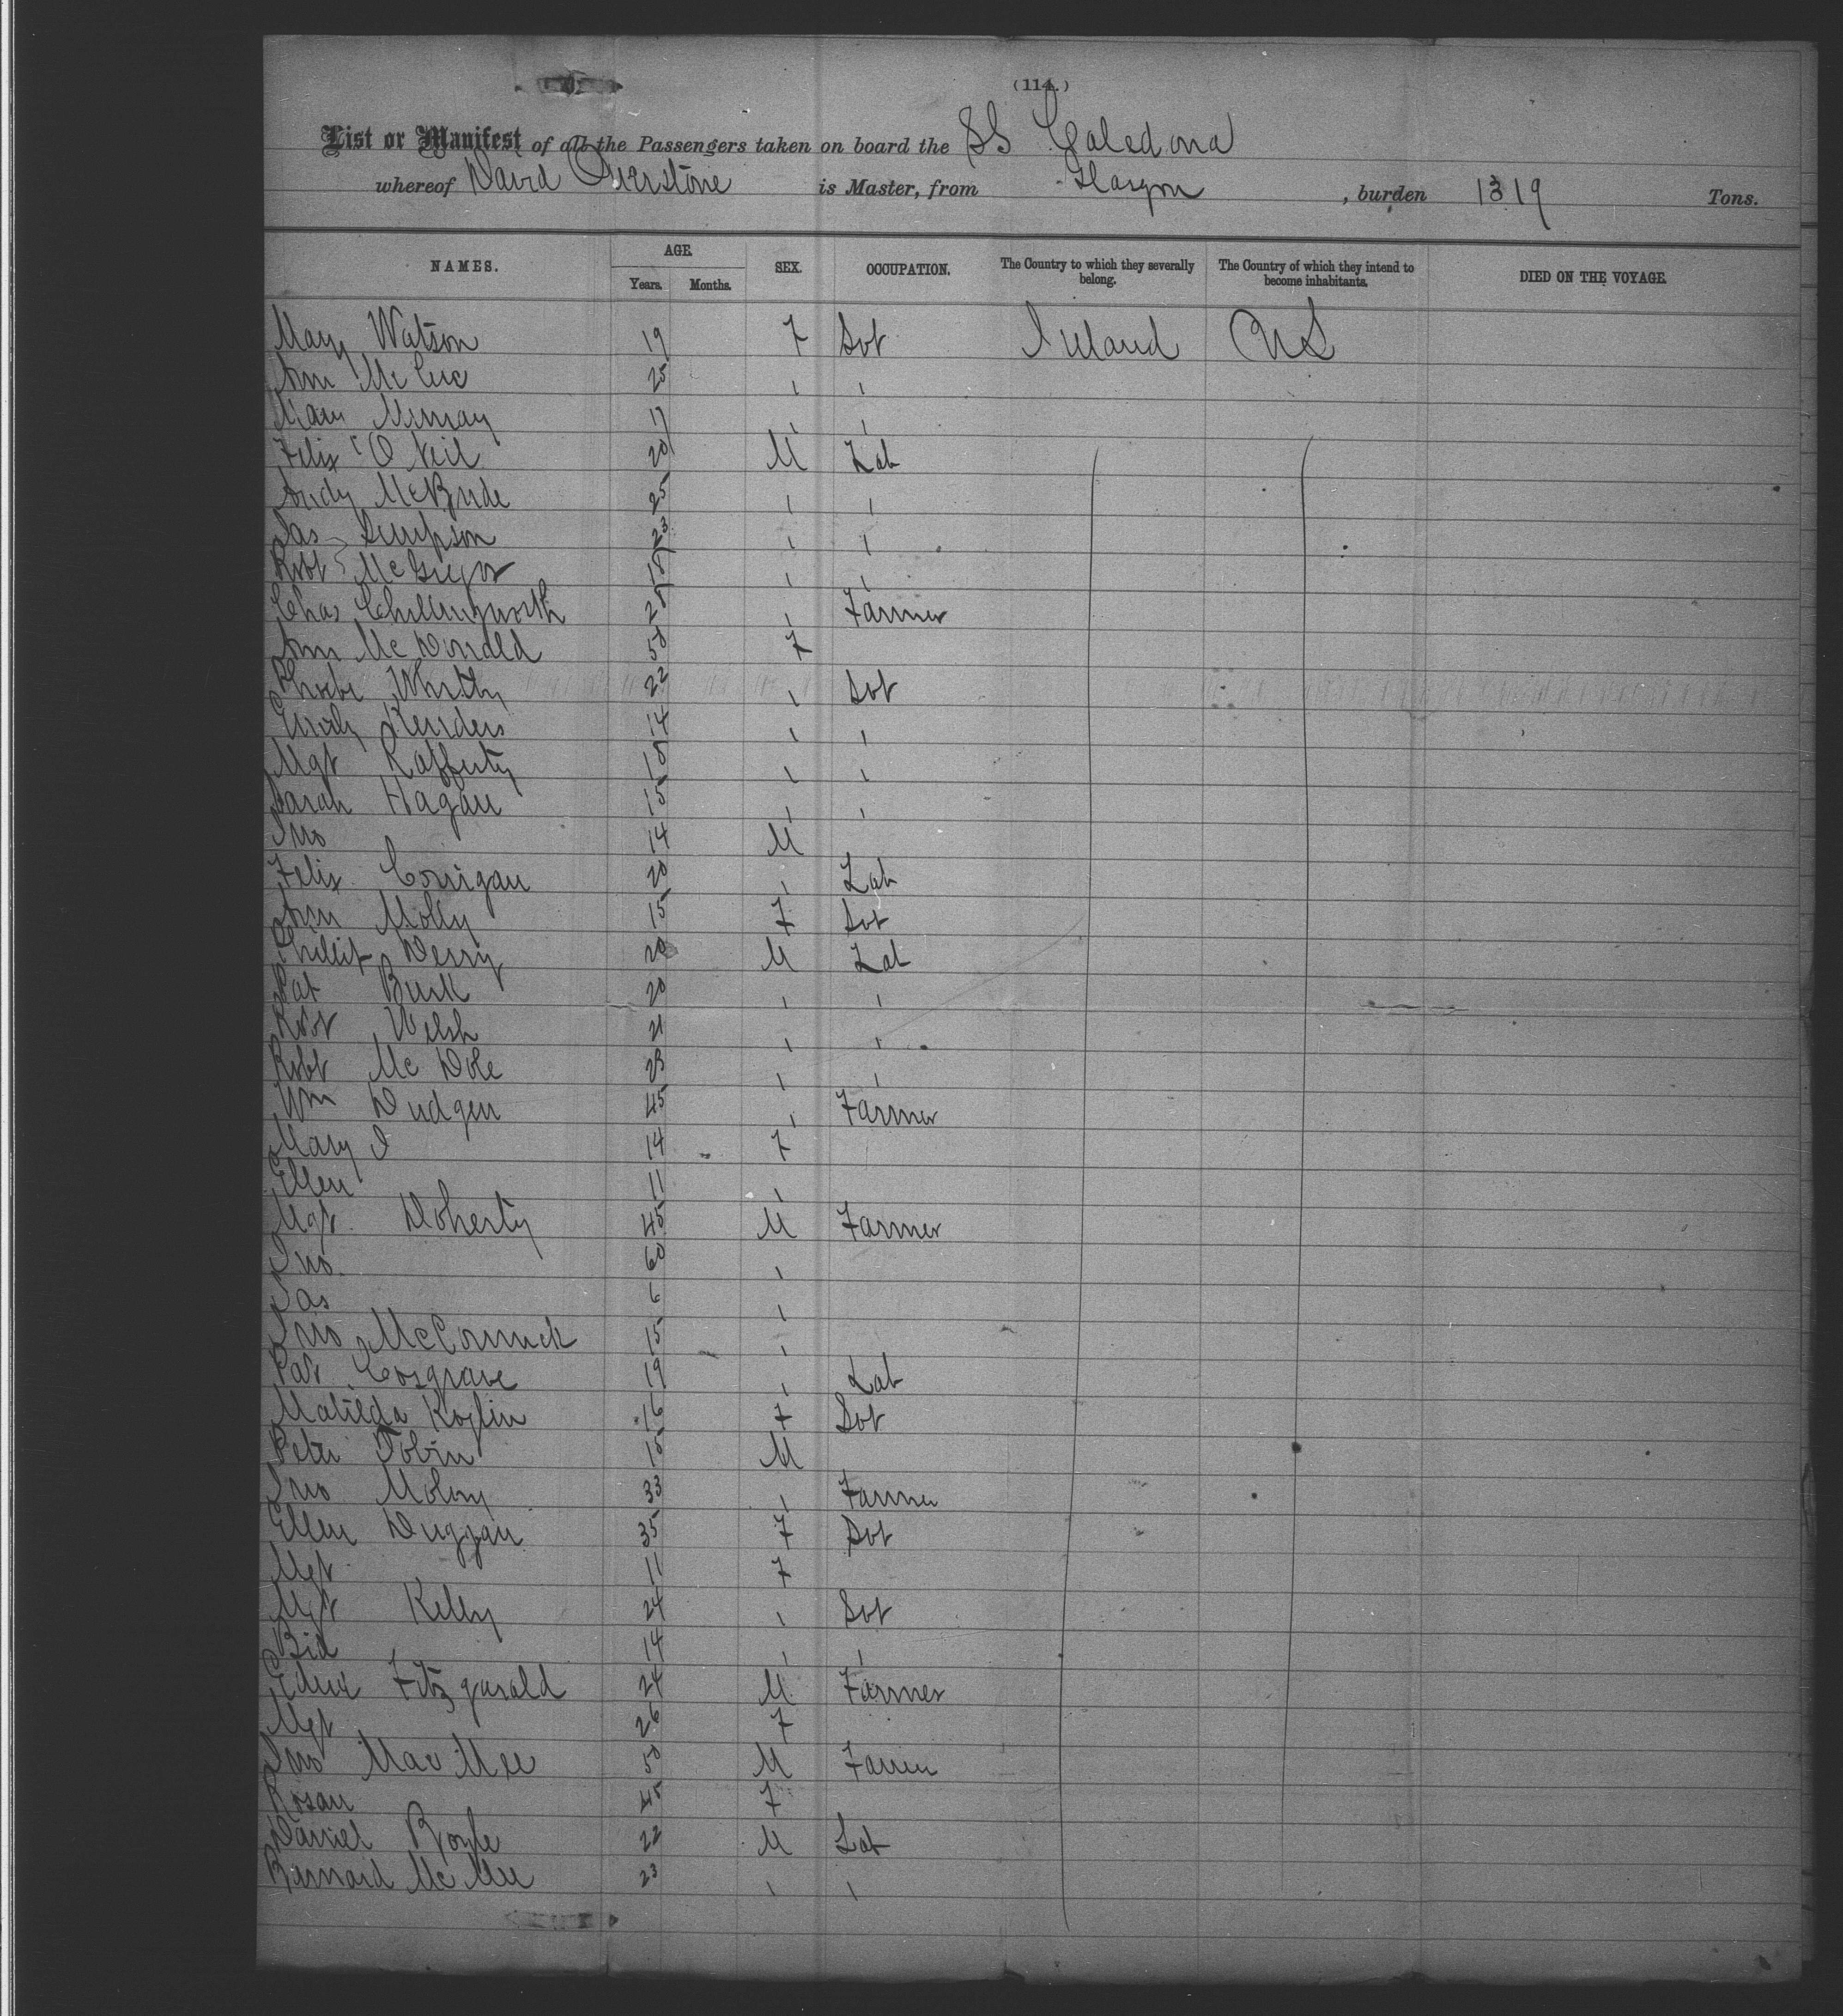 (114.)
List or Manifest of all the Passengers taken on board the SS Caledona
whereof David Overstone is Master, from Glasgow, burden 1319 Tons.
NAMES. AGE. Years. Months. SEX. OCCUPATION. The Country to which they severally belong. The Country of which they intend to become inhabitants. DIED ON THE VOYAGE.
Mary Watson 19 F Svt Ireland US
Ann 25 " "
Mary Murray 17 " "
Felix O'Neil 20 M Lab
Andy McBride 25 " "
Jas Simpson 23 " "
Robt McGregor 18 " "
Chas Chillingworth 28 " Farmer
Ann McDonald 50 F
Phoebe 22 " Svt
14 " "
Mgt Rafferty 18 " "
Sarah Hagan 15 " "
Jno 14 M
Felix Corrigan 20 " Lab
Ann Molly 15 F Svt
Phillip Derry 20 M Lab
Pat Burk 20 " "
Robt Welsh 21 " "
Robt McDole 23 " "
Wm Dudgen 45 " Farmer
Mary J 14 F
Ellen 11 "
Mgt Doherty 45 M Farmer
Jno. 60 "
Jas 6 "
Jno McCormick 15 "
Pat Cosgrave 19 " Lab
Matilda 16 F Svt
Peter Tobin 18 M
Jno Molony 33 " Farmer
Ellen Duggan 35 F Svt
Mgt 11 F
Mgt Kelly 24 " Svt
Bid 14 " "
Edwd Fitzgerald 24 M Farmer
Mgt 26 F
Jno 50 M Farmer
Rosan 45 F
Daniel Boyle 22 M Lab
Barnard 23 " "